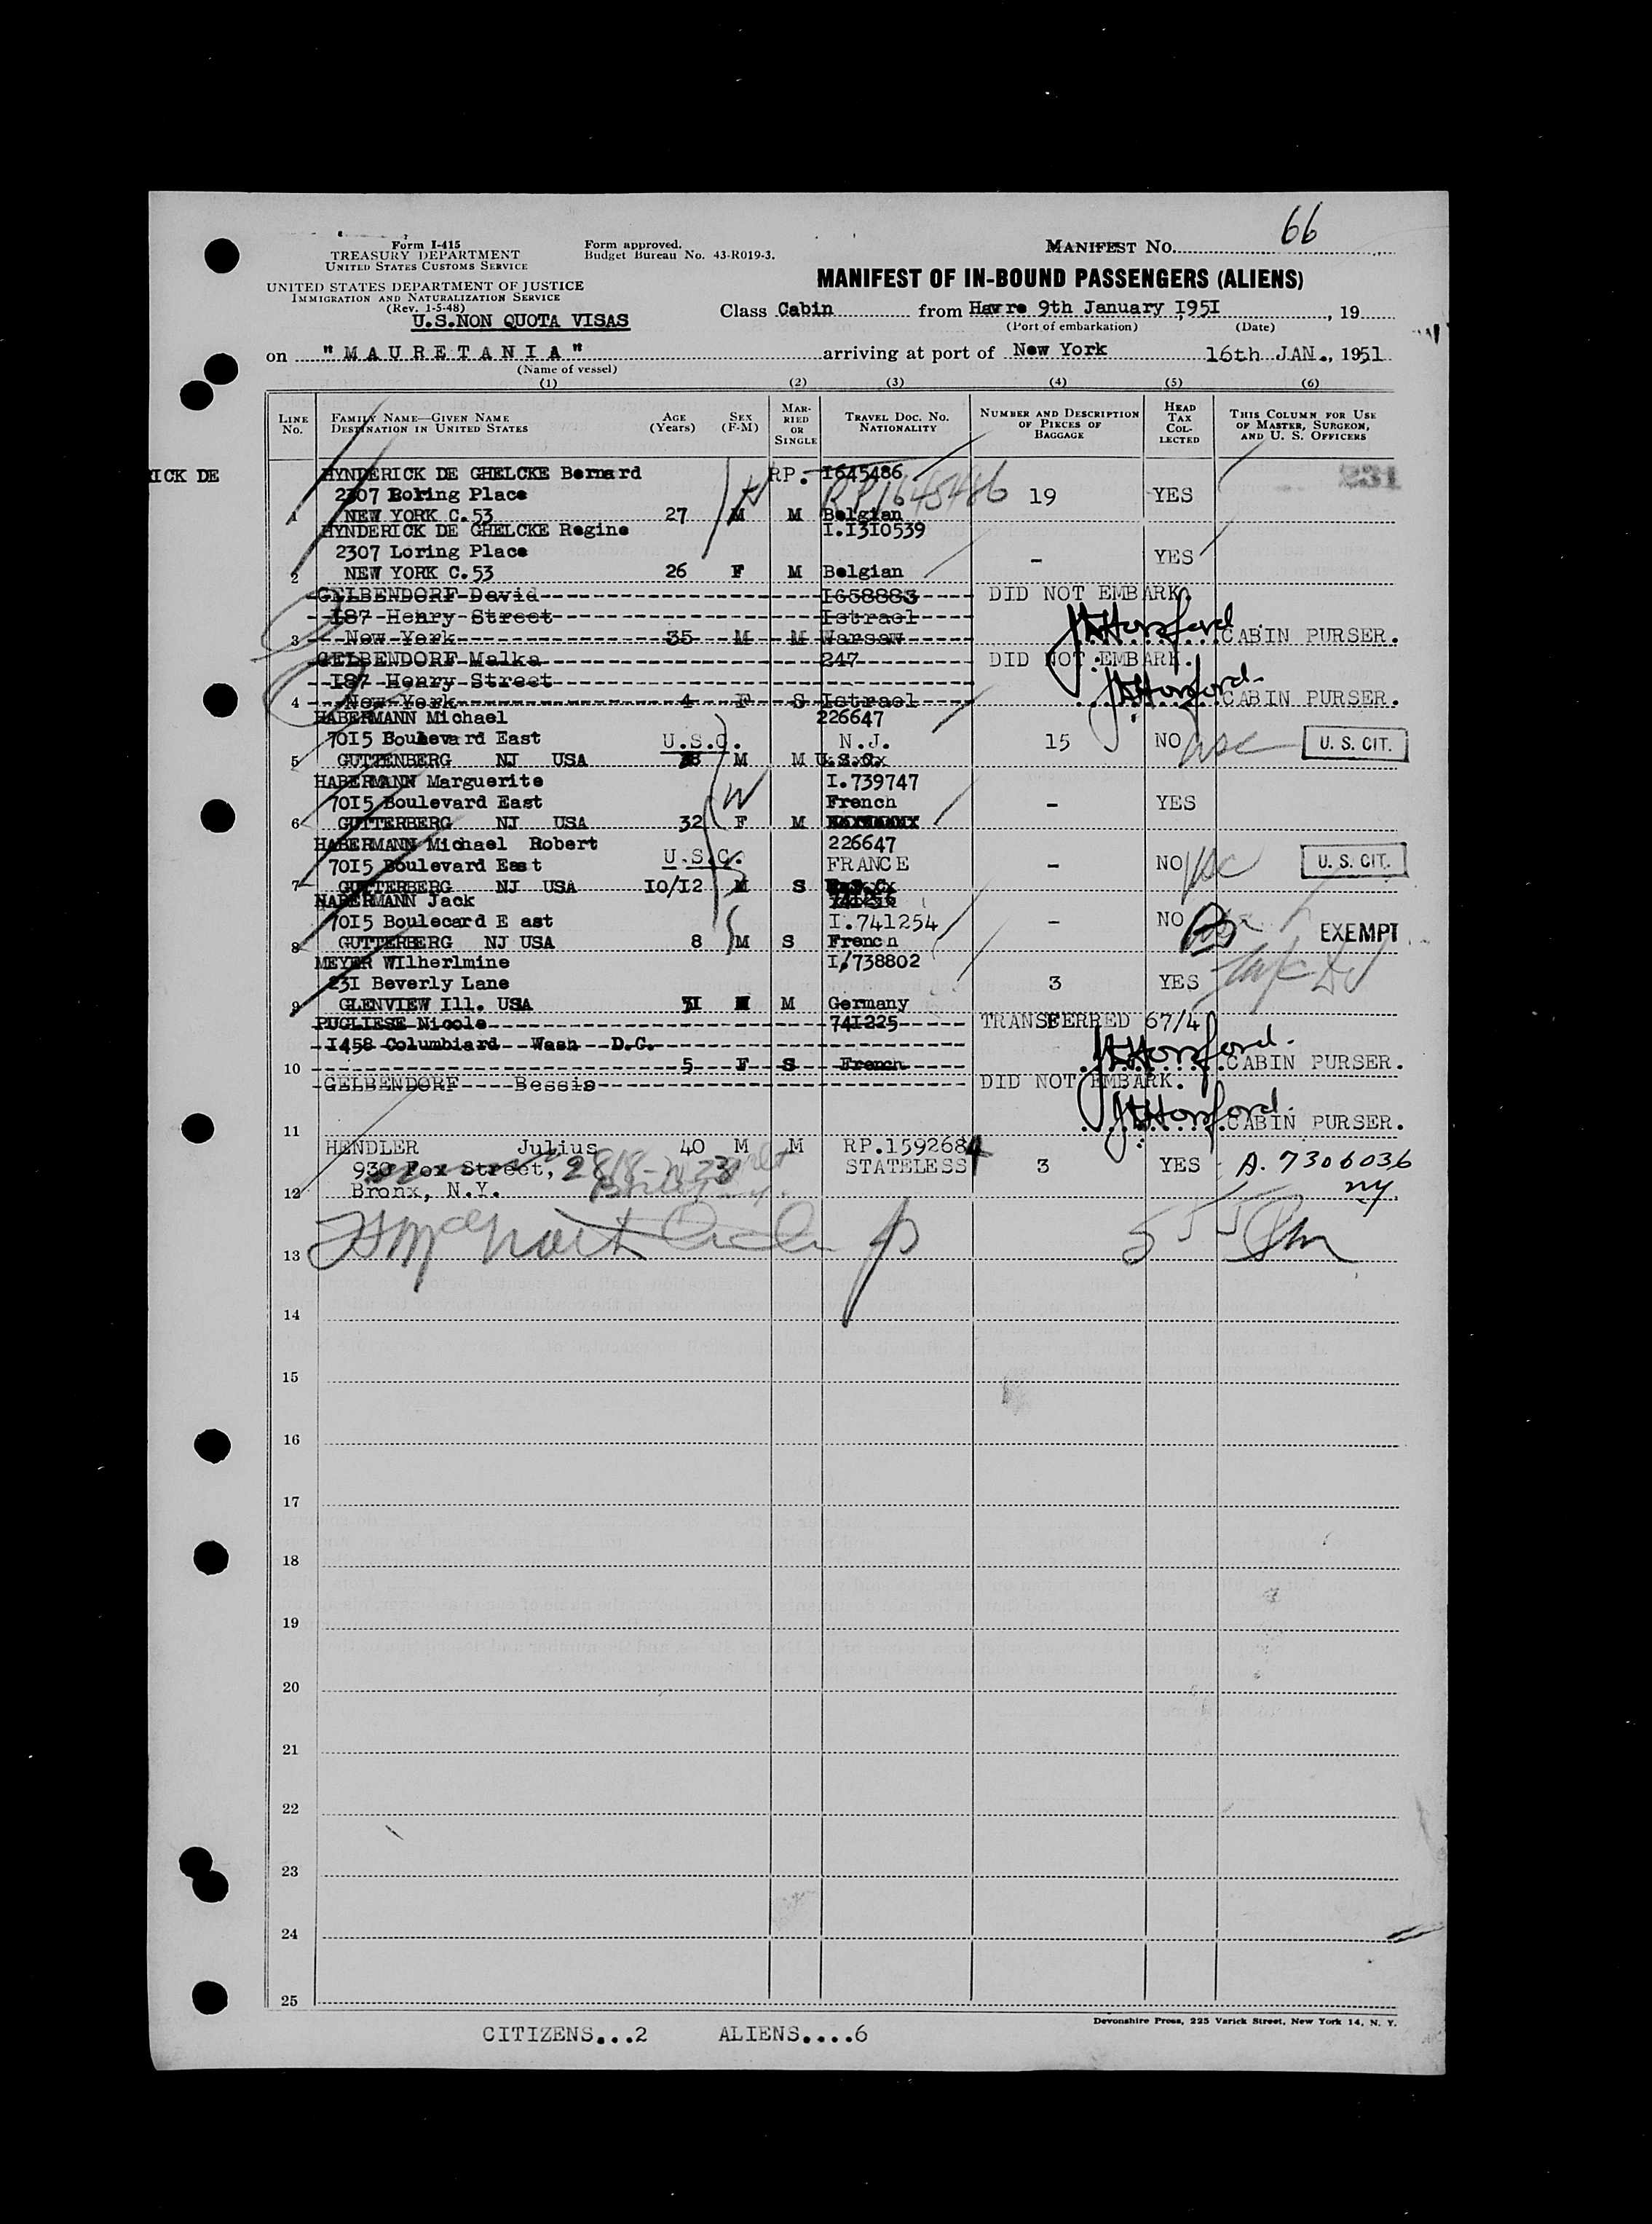 66
Form I-415
TREASURY DEPARTMENT
UNITED STATES CUSTOMS SERVICE
Form approved.
Budget Bureau No. 43-R019-3.
MANIFEST No.
UNITED STATES DEPARTMENT OF JUSTICE
IMMIGRATION AND NATURALIZATION SERVICE
(Rev. 1-5-48)
MANIFEST OF IN-BOUND PASSENGERS (ALIENS)
U.S.NON QUOTA VISAS
Class Cabin from Havre 9th January I95I , 19
(Port of embarkation) (Date)
on "MAURETANIA" arriving at port of New York 16th JAN., 1951
(Name of vessel)
(1) (2) (3) (4) (5) (6)
LINE No. FAMILY NAME—GIVEN NAME DESTINATION IN UNITED STATES AGE (Years) SEX (F-M) MARRIED OR SINGLE TRAVEL DOC. No. NATIONALITY NUMBER AND DESCRIPTION OF PIECES OF BAGGAGE HEAD TAX COLLECTED THIS COLUMN FOR USE OF MASTER, SURGEON, AND U. S. OFFICERS
RICK DE HYNDERICK DE GHELCKE Bernard RP. I645486 231
2307 Boring Place RP1645486 19 YES
1 NEW YORK C.53 27 M M Belgian
HYNDERICK DE GHELCKE Regine I.I3I0539
2307 Loring Place - YES
2 NEW YORK C.53 26 F M Belgian
GELBENDORF David I658883 DID NOT EMBARK.
I87 Henry Street Istrael
3 New York 35 M M Warsaw J Horsford CABIN PURSER.
GELBENDORF Malka 247 DID NOT EMBARK.
I87 Henry Street
4 New York 4 F S Istrael J Horsford CABIN PURSER.
HABERMANN Michael 226647
70I5 Boulevard East U.S.C. N.J. 15 NO USC U. S. CIT.
5 GUTTENBERG NJ USA M M
HABERMANN Marguerite I.739747
70I5 Boulevard East W French - YES
6 GUTTERBERG NJ USA 32 F M
HABERMANN Michael Robert 226647
70I5 Boulevard East U.S.C. FRANCE - NO USC U. S. CIT.
7 GUTTERBERG NJ USA I0/I2 M S
HABERMANN Jack
70I5 Boulecard E ast I.741254 - NO EXEMPT
8 GUTTERBERG NJ USA 8 M S French
MEYER WIlherlmine I/738802
23I Beverly Lane 3 YES
9 GLENVIEW Ill. USA 3I M Germany
PUGLIESE Nicole 74I225 TRANSFERRED 67/4
I458 Columbiard Wash D.C.
10 5 F S French J Horsford CABIN PURSER.
GELBENDORF Bessis DID NOT EMBARK.
11 J Horsford CABIN PURSER.
HENDLER Julius 40 M M RP.1592684
930 Fox Street, STATELESS 3 YES A. 7306036
12 Bronx, N.Y. NY
13
14
15
16
17
18
19
20
21
22
23
24
25
Devonshire Press, 225 Varick Street, New York 14, N. Y.
CITIZENS...2 ALIENS....6